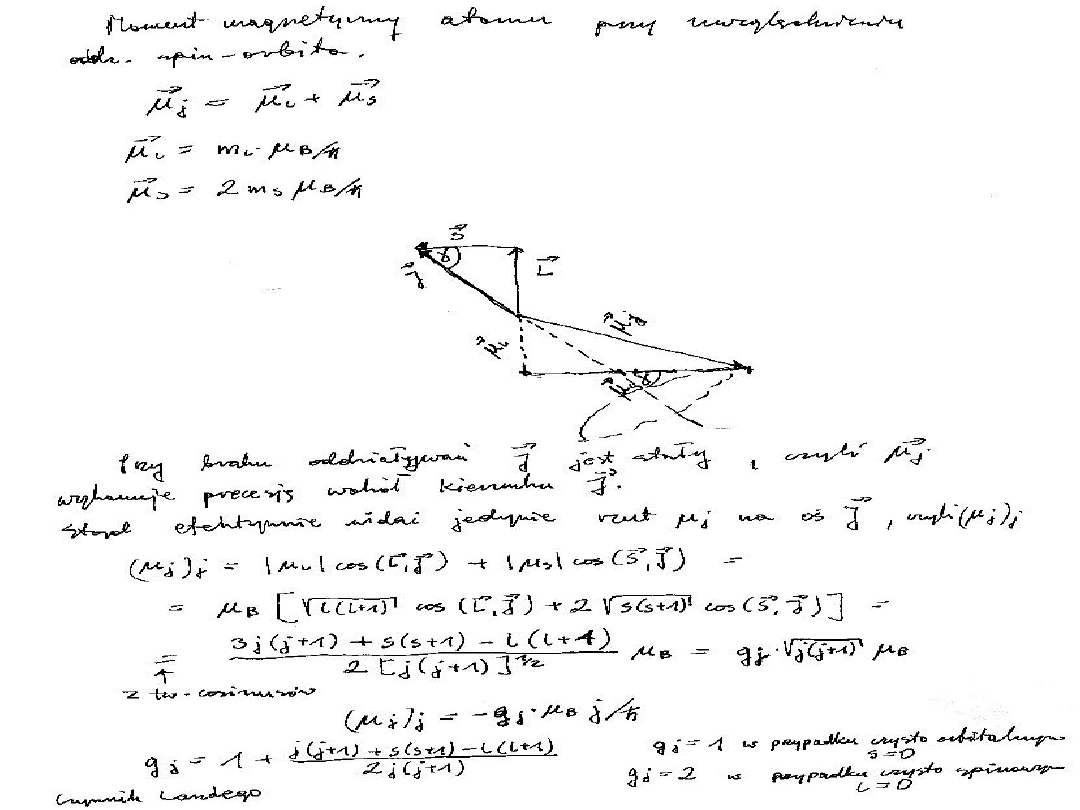 Moment magnetyczny atomu przy uwzględnieniu
oddz. spin-orbita.
μ⃗j = μ⃗l + μ⃗s
μ⃗l = ml·μB/ħ
μ⃗s = 2 ms μB/ħ
s⃗
γ
j⃗
L⃗
μ⃗j
μ⃗l
μ⃗s
γ
Przy braku oddziaływań j⃗ jest stały, czyli μ⃗j
wykonuje precesję wokół kierunku j⃗.
Stąd efektywnie widać jedynie rzut μj na oś j⃗, czyli (μj)j
(μj)j = |μl| cos(L⃗,j⃗) + |μs| cos(s⃗,j⃗) =
= μB [√l(l+1) cos(L⃗,j⃗) + 2√s(s+1) cos(s⃗,j⃗)] =
= 3j(j+1) + s(s+1) - l(l+1) / 2[j(j+1)]^1/2 μB = gj·√j(j+1) μB
↑
z tw. cosinusów
(μj)j = -gj·μB j/ħ
gj = 1 + j(j+1) + s(s+1) - l(l+1) / 2j(j+1)
gj = 1 w przypadku czysto orbitalnym
s=0
gj = 2 w przypadku czysto spinowym
l=0
czynnik Landego